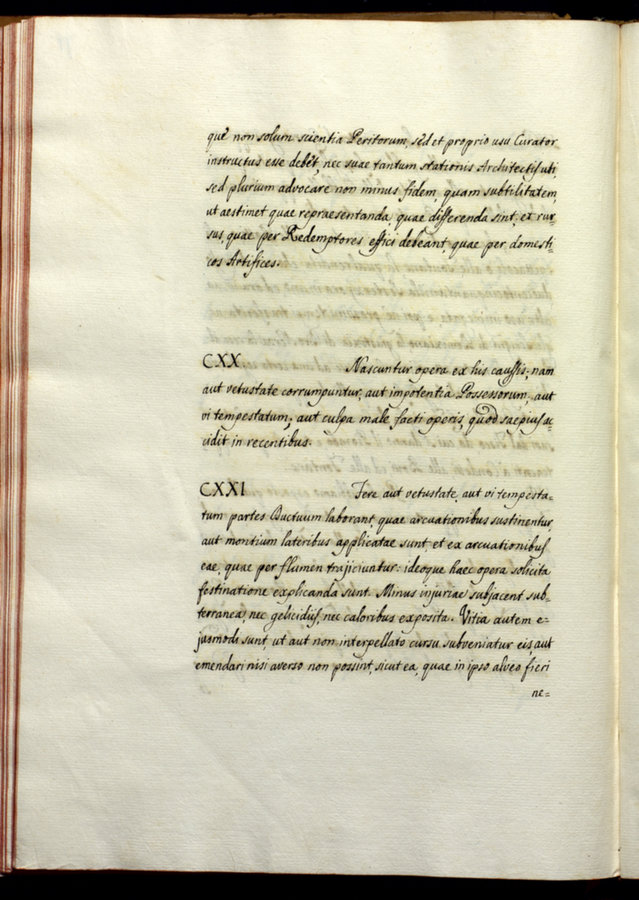 quê non solum scientia Peritorum, sed et proprio usu Curator
instructus esse debet, nec suae tantum stationis Architectis uti
sed plurium advocare non minus fidem, quam subtilitatem,
ut aestimet quae repraesentanda, quae differenda sint, et rur=
sus, quae per Redemptores effici debeant, quae per domesti=
cos Artifices.
CXX Nascuntur opera ex his caussis; nam
aut vetustate corrumpuntur, aut impotentia Possessorum, aut
vi tempestatum, aut culpa male facti operis, quod saepius ac=
cidit in recentibus.
CXXI Fere aut vetustate, aut vi tempesta=
tum partes Ductuum laborant, quae arcuationibus sustinentur,
aut montium lateribus applicatae sunt, et ex arcuationibus
eae, quae per flumen trajiciuntur: ideoque haec opera solicita
festinatione explicanda sunt. Minus injuriae subjacent sub=
terranea, nec gelicidiis, nec caloribus exposita. Vitia autem e=
jusmodi sunt, ut aut non interpellato cursu subveniatur eis, aut
emendari nisi averso non possint, sicut ea, quae in ipso alveo fieri
ne=